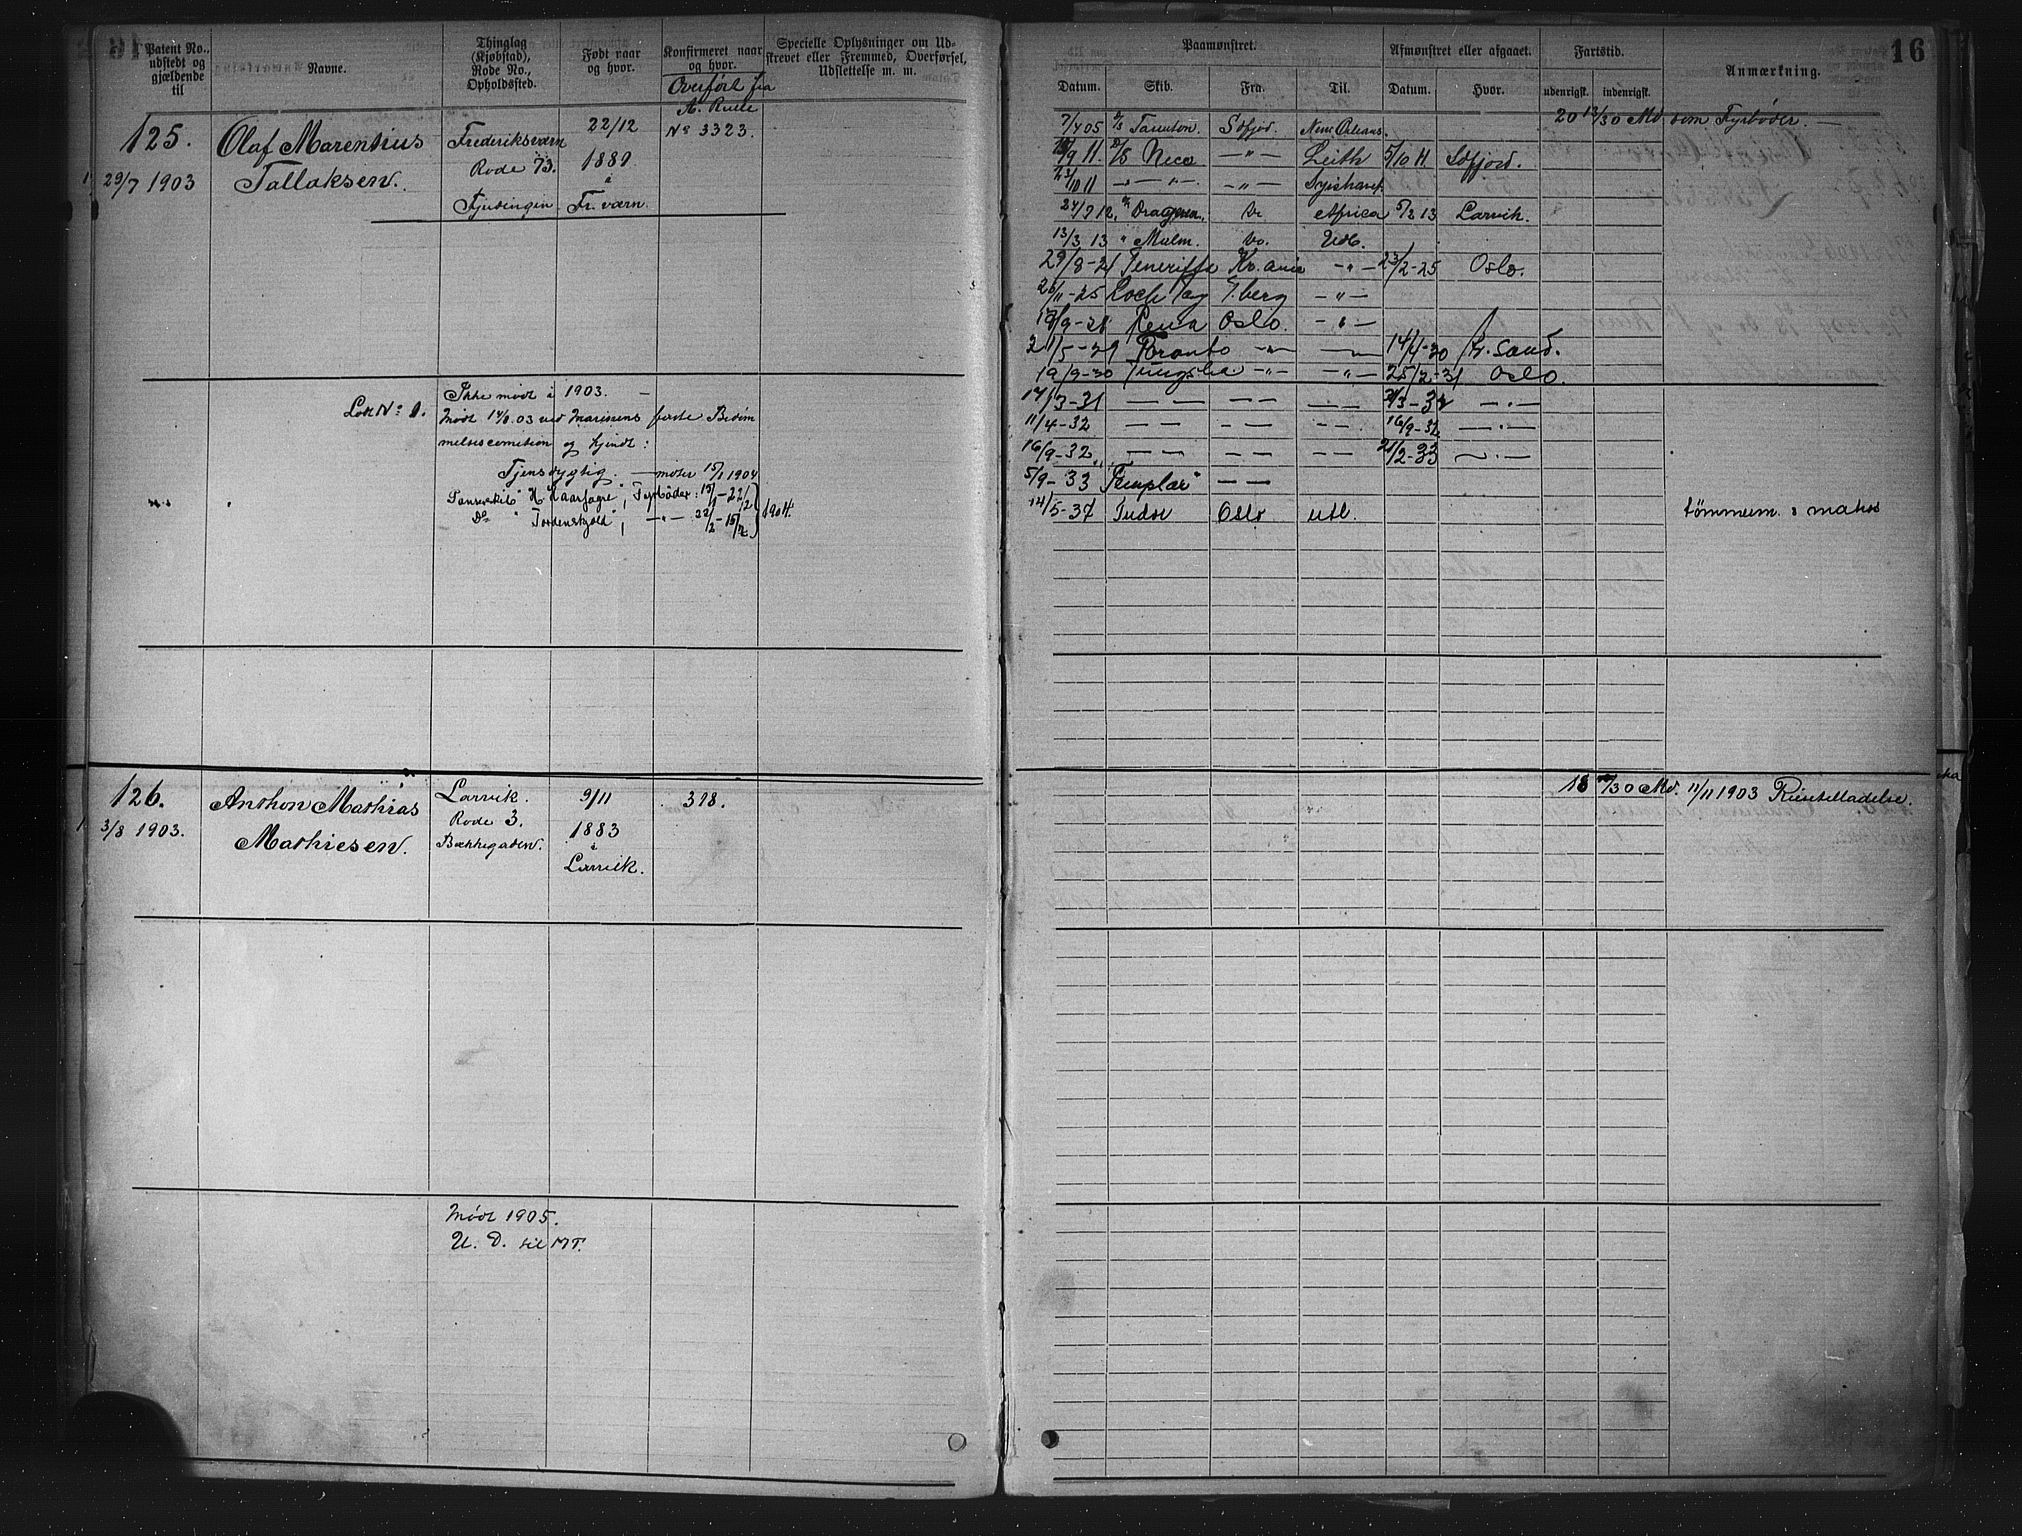 16
Patent No., udstedt og gjældende til
Navne.
Thinglag (Kjøbstad), Rode No., Opholdssted.
Født naar og hvor.
Konfirmeret naar og hvor.
Specielle Oplysninger om Udskrevet eller Fremmed, Overførsel, Udslettelse m. m.
Paamønstret.
Afmønstret eller afgaaet.
Fartstid.
Anmærkning.
Datum. Skib. Fra. Til. Datum. Hvor. udenrigsk. indenrigsk.
Overført fra
A. Rulle
No 3323.
125.
29/7 1903
Olaf Marentius
Tallaksen.
Frederiksværn
Rode 73.
22/12
1881
i
Fr. værn.
20 13/30 Md som Fyrbøder.
7/4 05 D/S Taunton. Sdfjord. New Orleans.
/9 11. D/S Neco — " — Leith 5/10 11 Sdfjord.
23/10 11 — " — " — — " —
24/9 12. Do Africa 5/2 13 Larvik.
13/3 13 " Do. Udl.
29/8-21 Teneriffa Kr.ania — " — 23/2-25 Oslo.
25/11-25 Loch Tay T.berg — " —
19/9-28 Rena Oslo. — " —
21/5-29 Toronto — " — — " — 14/4-30 Kr. Sand.
19/9-30 — " — — " — 25/2-31 Oslo.
17/3-31 — — — — — — 3/3-32 — " —
11/4-32 — — — — — — 16/9-32 — " —
16/9-32 — — — — — — 21/2-33 — " —
5/9-33 "Templar" — —
14/5-37 Tudor Oslo utl. tømmerm. & matros
Lott No 1.
Ikke mødt i 1903. —
Mødt 14/8.03 ved Marinens første Bedøm
melseskomition og kjendt:
Tjensdygtig. — møter 15/1 1904
Panserskib "H. Haarfagre", Fyrbøder: 15/1 – 22/2
Do "Tordenskjold", — " — 22/2 – 15/7
1904.
126.
3/8 1903.
Anthon Mathias
Mathiesen.
Larvik.
Rode 3.
Bækkegaden.
9/11
1883
i
Larvik.
378.
Md. 11/11 1903
Mødt 1905.
U. D. til MT.